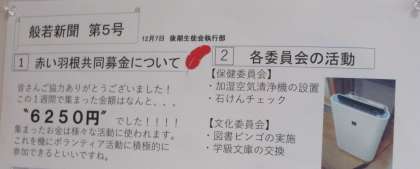 般若新聞 第5号
12月7日 後期生徒会執行部
1 赤い羽根共同募金について
皆さんご協力ありがとうございました!
この1週間で集まった金額はなんと、、、
“6250円”でした!!!!
集まったお金は様々な活動に使われます。
これを機にボランティア活動に積極的に
参加できるといいですね。
2 各委員会の活動
【保健委員会】
・加湿空気清浄機の設置
・石けんチェック
【文化委員会】
・図書ビンゴの実施
・学級文庫の交換